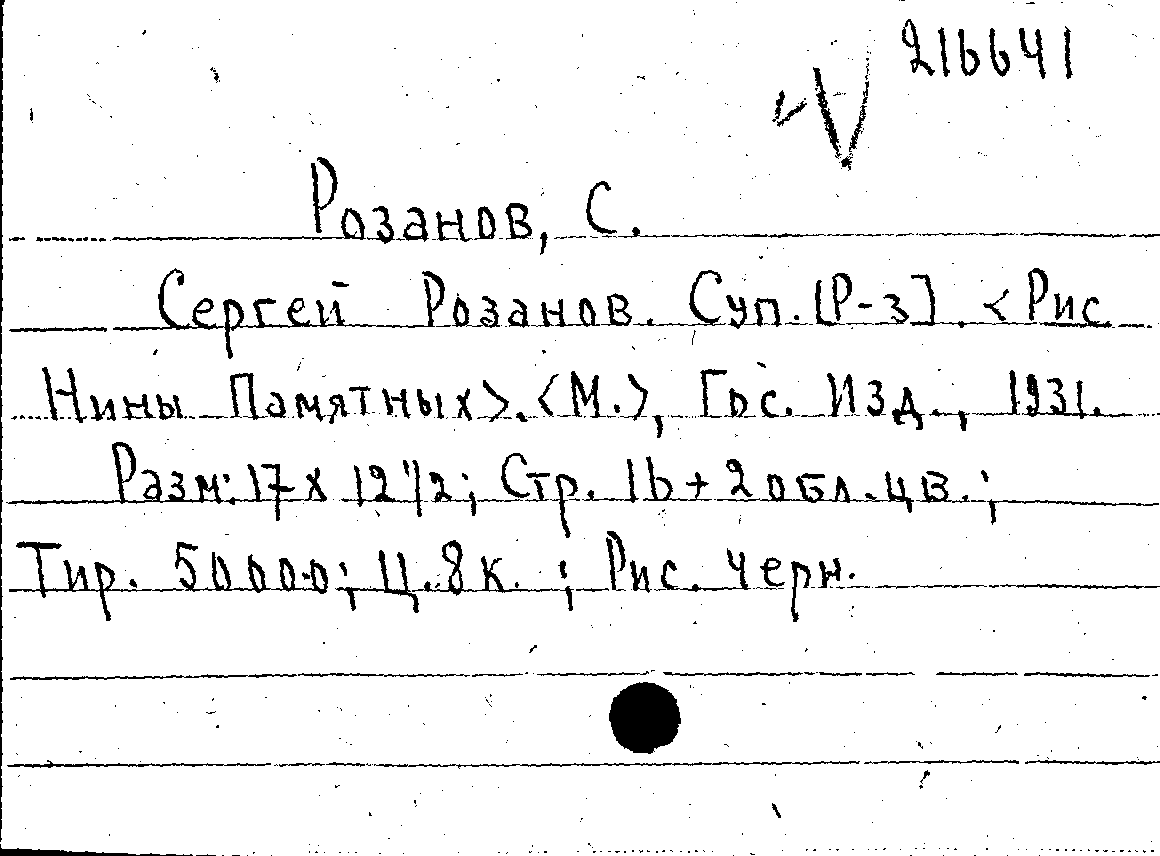 216641
Розанов, С.
Сергей Розанов. Суп. [Р-з]. <Рис
Нины Памятных>. <М.>, Гос. Изд., 1931.
Разм: 17 x 12 1/2; Стр. 16 + 2 обл. цв.;
Тир. 50000; Ц. 8 к. ; Рис. черн.